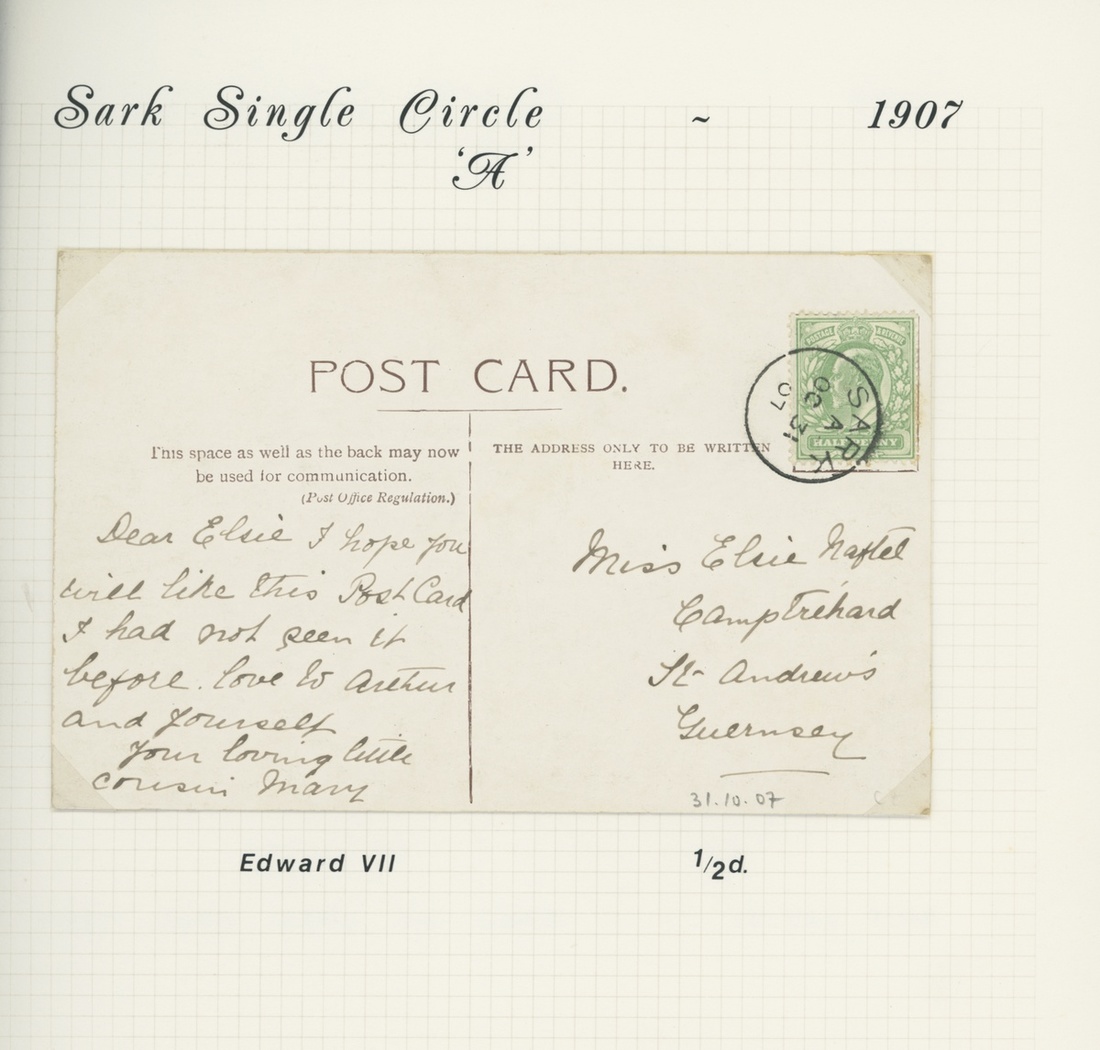 Sark Single Circle ~ 1907
'A'
POST CARD.
This space as well as the back may now
be used for communication.
(Post Office Regulation.)
THE ADDRESS ONLY TO BE WRITTEN
HERE.
POSTAGE & REVENUE
HALFPENNY
SARK
A
OC 31
07
Dear Elsie I hope you
will like this Post Card
I had not seen it
before. love to Arthur
and yourself
Your loving little
cousin Mary
Miss Elsie Naftel
Camptréhard
St Andrew's
Guernsey
31.10.07
Edward VII 1/2d.